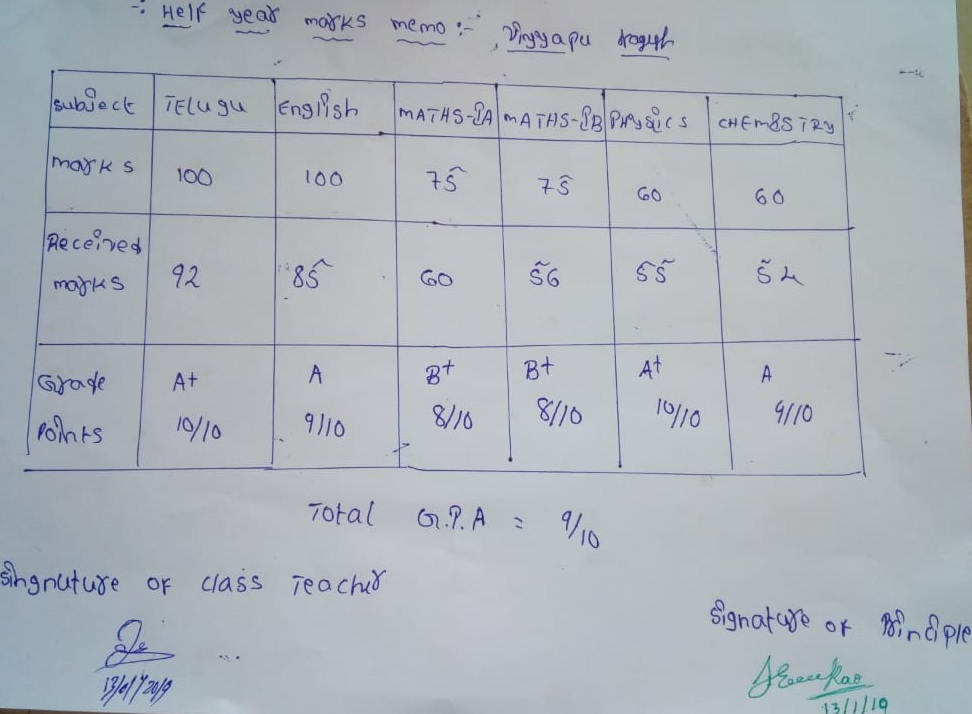 :- Helf year marks memo :-
Vinyyapu
Subject TELUGU English MATHS-IA MATHS-IB PHYSICS CHEMISTRY
marks 100 100 75 75 60 60
Received
marks 92 85 60 56 55 54
Grade A+ A B+ B+ A+ A
Points 10/10 9/10 8/10 8/10 10/10 9/10
Total G.P.A = 9/10
Singnuture of class Teacher
Signature of Principle
13/01/2019
13/1/19